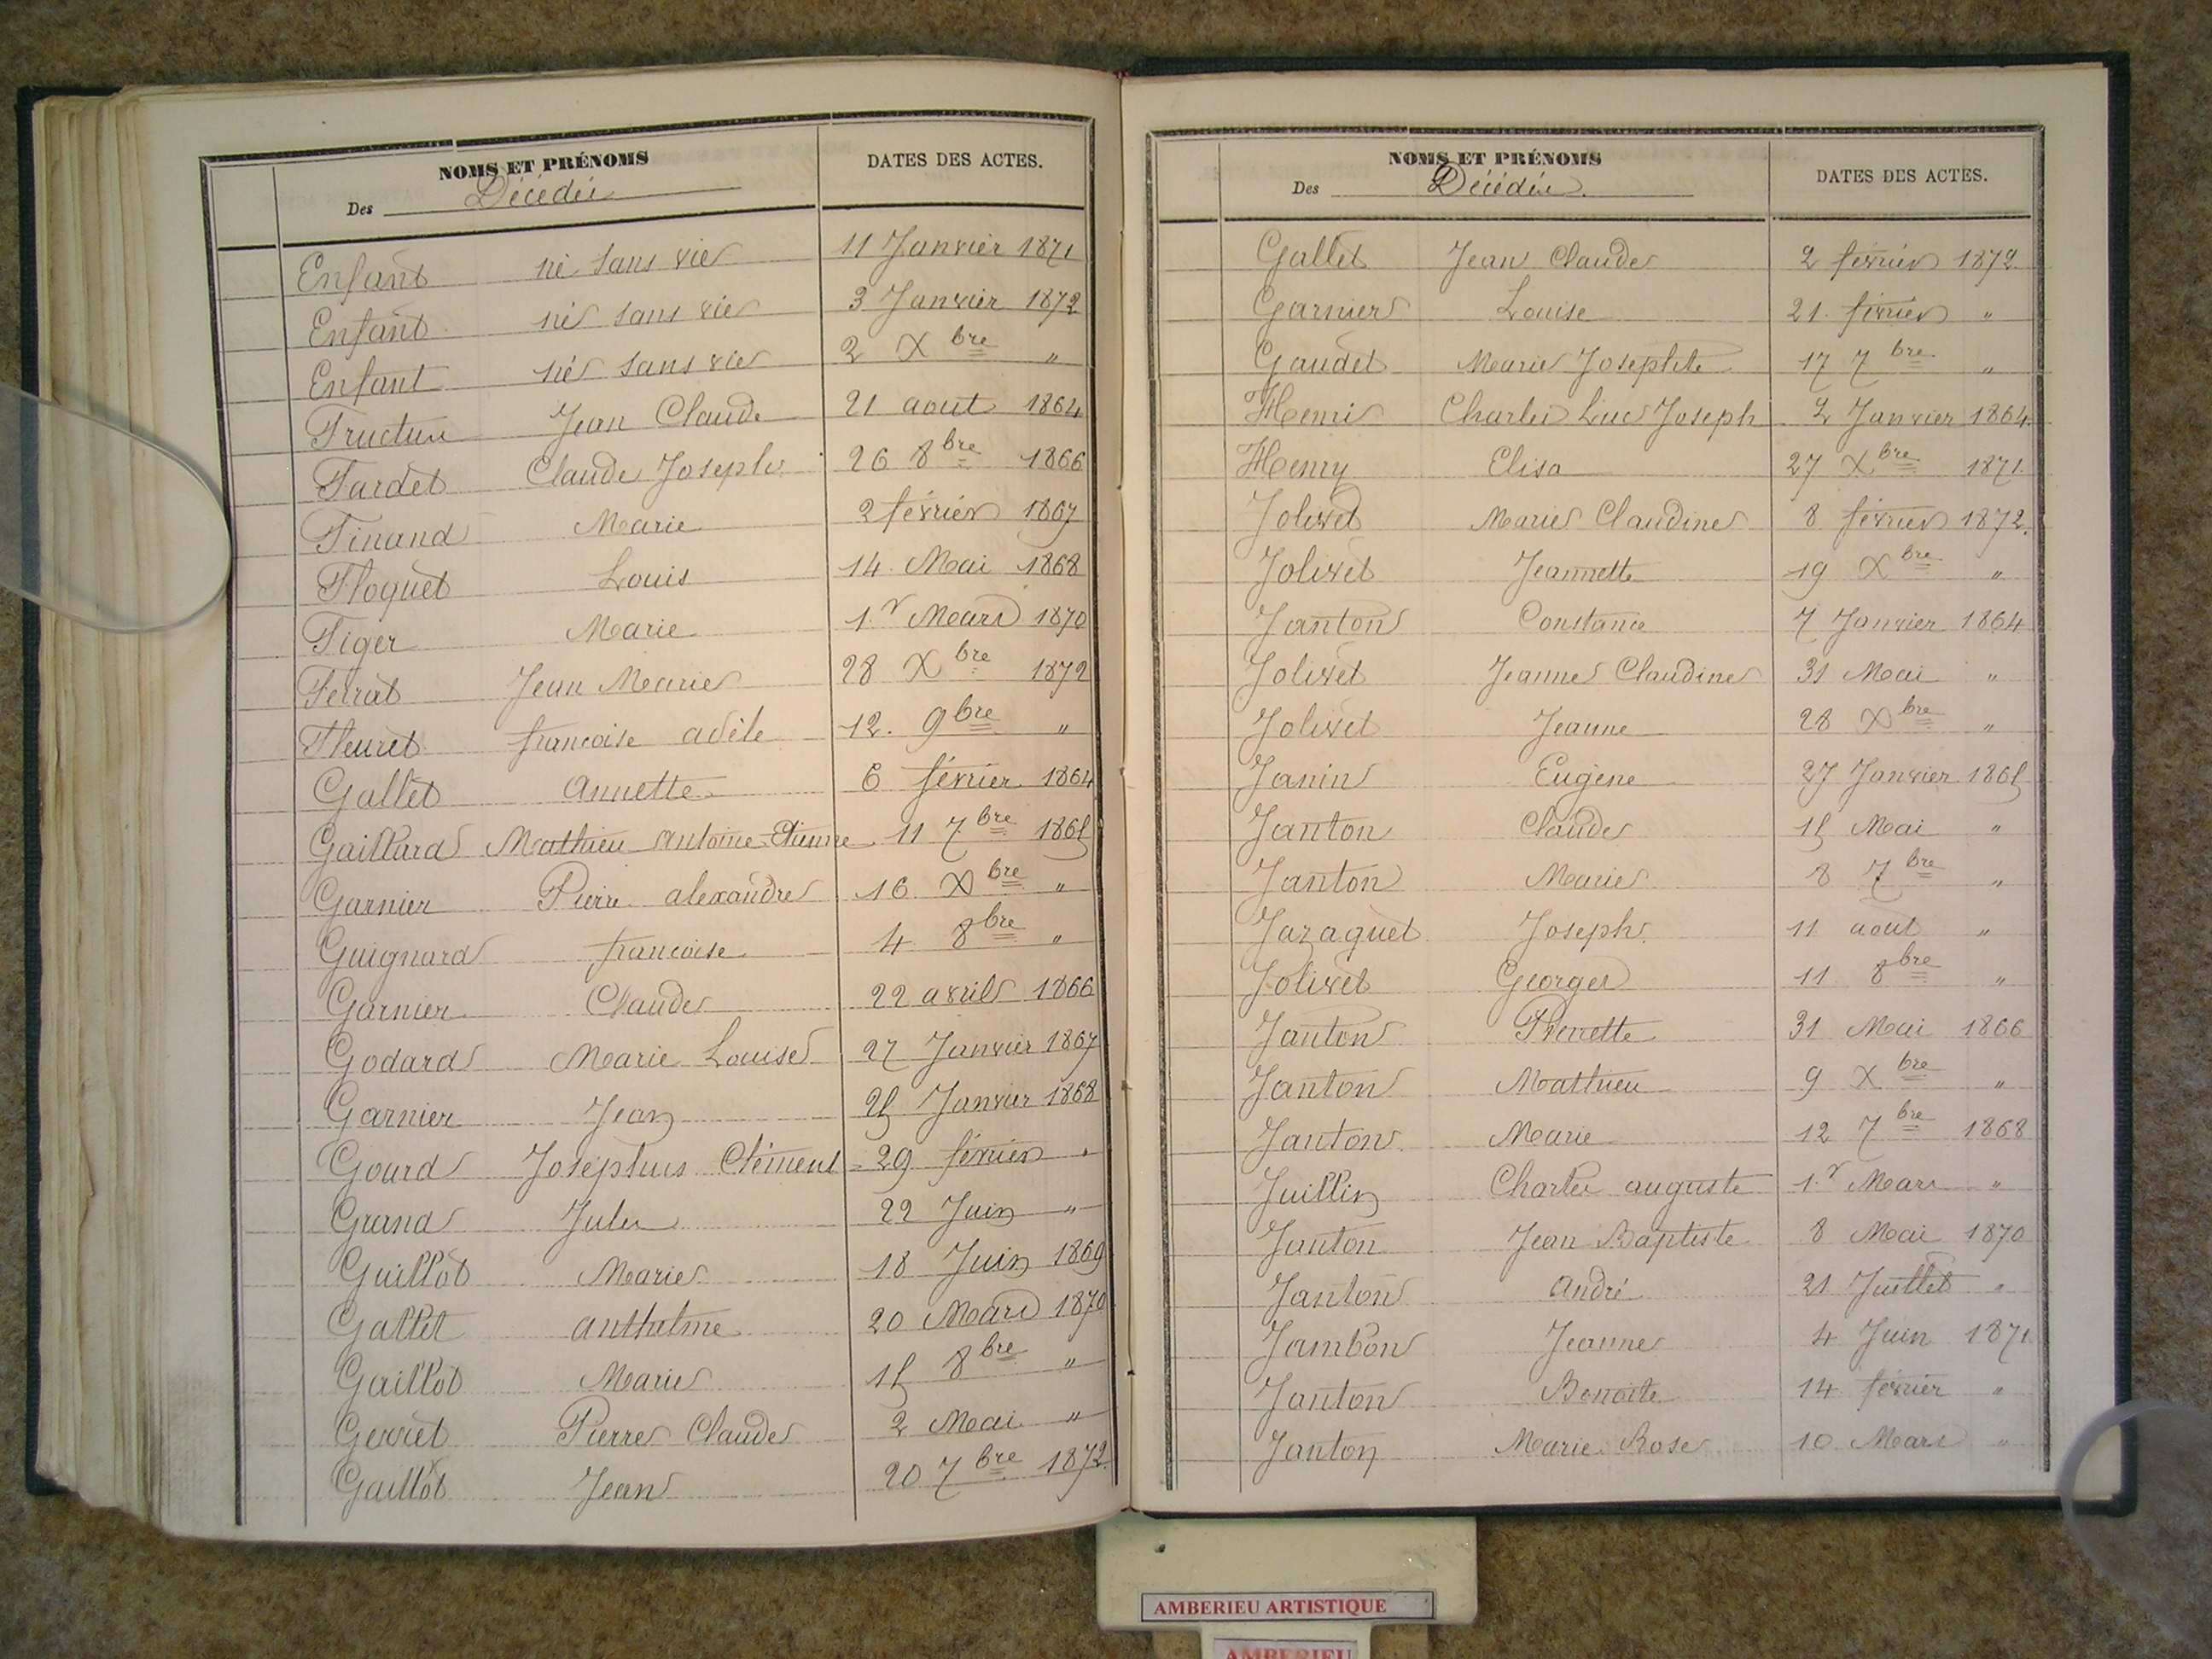 NOMS ET PRÉNOMS
Des Décédés
DATES DES ACTES.
Enfant né sans vie 11 Janvier 1871
Enfant né sans vie 3 Janvier 1872
Enfant né sans vie 2 Xbre "
Fructus Jean Claude 21 aout 1864
Fardet Claude Joseph 26 8bre 1866
Finand Marie 2 février 1867
Floquet Louis 14 Mai 1868
Figer Marie 1.r Mars 1870
Ferrat Jean Marie 28 Xbre 1872
Fleuret francoise adèle 12. 9bre "
Gallet annette 6 février 1864
Gaillard Mathieu antoine Etienne 11 7bre 1865
Garnier Pierre alexandre 16 Xbre "
Guignard francoise 4 8bre "
Garnier Claude 22 avril 1866
Godard Marie Louise 27 Janvier 1867
Garnier Jean 25 Janvier 1868
Gourd Josephus Clément 29 février "
Grand Jules 22 Juin "
Guillot Marie 18 Juin 1869
Gallet anthelme 20 Mars 1870
Gaillot Marie 15 8bre "
Gerret Pierre Claude 2 Mai "
Gaillot Jean 20 7bre 1872
NOMS ET PRÉNOMS
Des Décédés.
DATES DES ACTES.
Gallet Jean Claude 2 février 1872
Garnier Louise 21 février "
Gaudet Marie Josephte 17 7bre "
Henri Charles Luc Joseph 2 Janvier 1864
Henry Elisa 27 Xbre 1871
Jolivet Marie Claudine 8 février 1872.
Jolivet Jeannette 19 Xbre "
Janton Constance 7 Janvier 1864
Jolivet Jeanne Claudine 31 Mai "
Jolivet Jeanne 28 Xbre "
Janin Eugène 27 Janvier 1865
Janton Claude 15 Mai "
Janton Marie 8 7bre "
Jazaguet Joseph 11 aout "
Jolivet Georges 11 8bre "
Janton Pierrette 31 Mai 1866
Janton Mathieu 9 Xbre "
Janton Marie 12 7bre 1868
Juillin Charles auguste 1.r Mars "
Janton Jean Baptiste 8 Mai 1870
Janton André 21 Juillet "
Jambon Jeanne 4 Juin 1871
Janton Benoite 14 février "
Janton Marie Rose 10 Mars "
AMBERIEU ARTISTIQUE
AMBERIEU